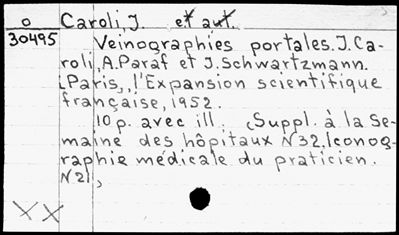 o Caroli, J. et aut.
30495 Veinographies portales. J. Ca-
roli, A. Paraf et J. Schwartzmann.
(Paris,, l'Expansion scientifique
française, 1952.
10 p. avec ill. (Suppl. à la Se-
maine des hôpitaux N 32. Iconog-
raphie médicale du praticien.
N 2),
XX